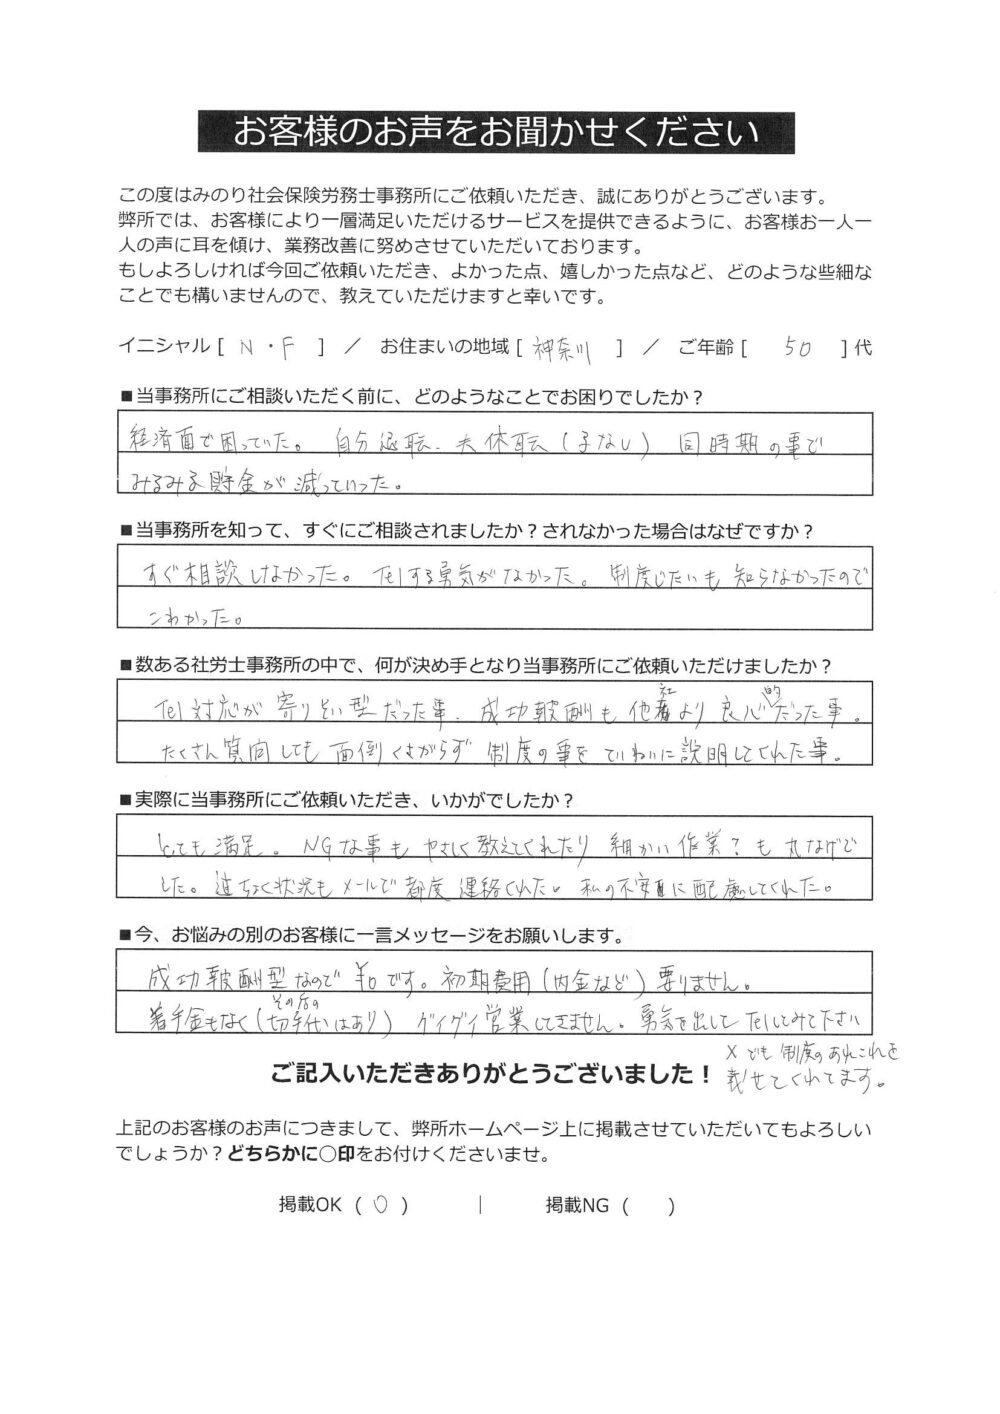 お客様のお声をお聞かせください
この度はみのり社会保険労務士事務所にご依頼いただき、誠にありがとうございます。
弊所では、お客様により一層満足いただけるサービスを提供できるように、お客様お一人一
人の声に耳を傾け、業務改善に努めさせていただいております。
もしよろしければ今回ご依頼いただき、よかった点、嬉しかった点など、どのような些細な
ことでも構いませんので、教えていただけますと幸いです。
イニシャル [ N・F ] ／ お住まいの地域 [ 神奈川 ] ／ ご年齢 [ 50 ] 代
■当事務所にご相談いただく前に、どのようなことでお困りでしたか？
経済面で困っていた。自分退職、夫休職(子なし) 同時期の事で
みるみる貯金が減っていった。
■当事務所を知って、すぐにご相談されましたか？されなかった場合はなぜですか？
すぐ相談しなかった。Telする勇気がなかった。制度じたいも知らなかったので
こわかった。
■数ある社労士事務所の中で、何が決め手となり当事務所にご依頼いただけましたか？
Tel対応が寄りそい型だった事、成功報酬も他社より良心的だった事。
たくさん質問しても面倒くさがらず制度の事をていねいに説明してくれた事。
■実際に当事務所にご依頼いただき、いかがでしたか？
とても満足。NGな事もやさしく教えてくれたり細かい作業？も丸なげで
した。逐ちょく状況もメールで都度連絡くれた。私の不安面に配慮してくれた。
■今、お悩みの別のお客様に一言メッセージをお願いします。
成功報酬型なので¥0です。初期費用(内金など)要りません。
着手金もなく(その后の切手代はあり) グイグイ営業してきません。勇気を出してTelしてみて下さい
Xでも制度のあれこれを
載せてくれてます。
ご記入いただきありがとうございました！
上記のお客様のお声につきまして、弊所ホームページ上に掲載させていただいてもよろしい
でしょうか？どちらかに○印をお付けくださいませ。
掲載OK ( ○ ) | 掲載NG ( )